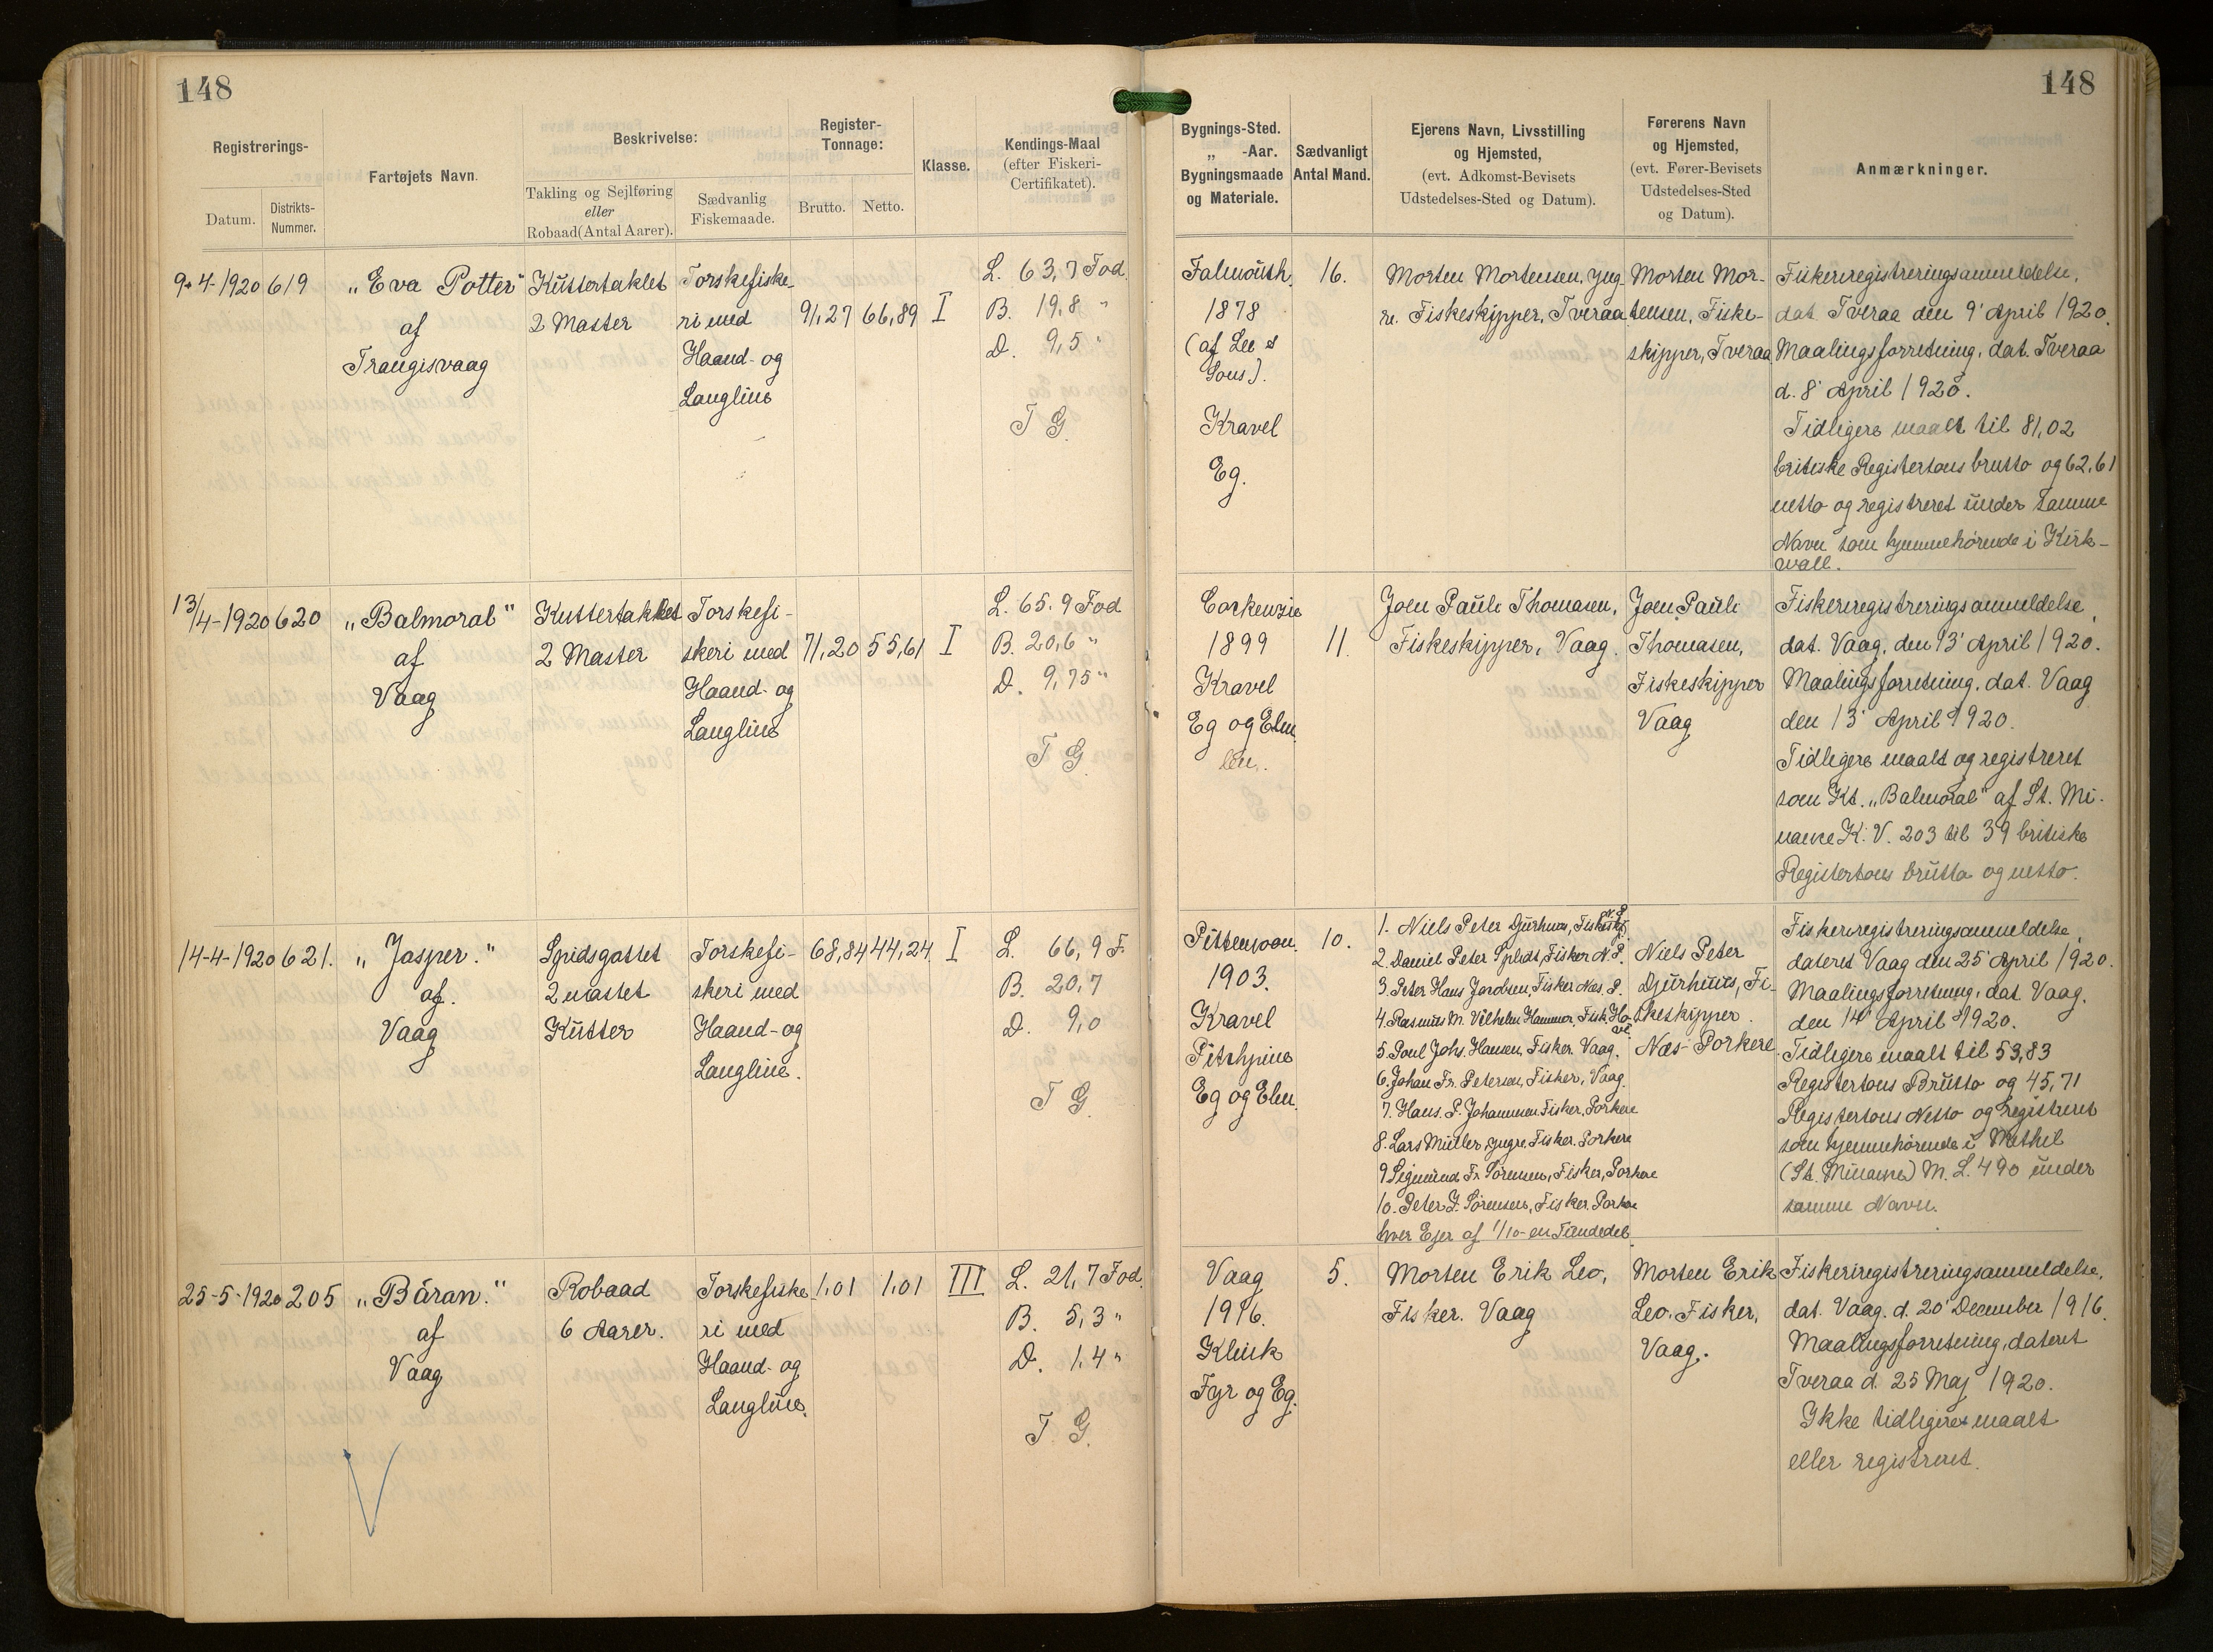 148
148
Registrerings-
Datum.
Distrikts-
Nummer.
Fartøjets Navn.
Beskrivelse:
Takling og Sejlføring
eller
Robaad (Antal Aarer).
Sædvanlig
Fiskemaade.
Register-
Tonnage:
Brutto.
Netto.
Klasse.
Kendings-Maal
(efter Fiskeri-
Certifikatet).
Bygnings-Sted.
„ -Aar.
Bygningsmaade
og Materiale.
Sædvanligt
Antal Mand.
Ejerens Navn, Livsstilling
og Hjemsted,
(evt. Adkomst-Bevisets
Udstedelses-Sted og Datum).
Førerens Navn
og Hjemsted,
(evt. Fører-Bevisets
Udstedelses-Sted
og Datum).
Anmærkninger.
9-4-1920
619
„Eva Potter"
af
Trangisvaag
Kuttertaklet
2 Master
Torskefiske-
ri med
Haand- og
Langline
91,27
66,89
I
L. 63,7 Fod.
B. 19,8 "
D. 9,5 "
T G.
Falmouth.
1878
(af Lee et
Sons).
Kravel
Eg.
16.
Morten Mortensen, yng-
re. Fiskeskipper, Tveraa
Morten Mor-
tensen, Fiske-
skipper, Tveraa
Fiskeriregistreringsanmeldelse,
dat. Tveraa den 9' April 1920.
Maalingsforretning, dat. Tveraa
d. 8' April 1920.
Tidligere maalt til 81,02
britiske Registertons brutto og 62,61
netto og registreret under samme
Navn som hjemmehørende i Kirk-
wall.
13/4-1920
620
„Balmoral"
af
Vaag
Kuttertakket
2 Master
Torskefi-
skeri med
Haand- og
Langline
71,20
55,61
I
L. 65.9 Fod
B. 20,6 "
D. 9,75 "
T G.
Cockenzie
1899
Kravel
Eg og Elm
11.
Joen Pauli Thomasen,
Fiskeskipper, Vaag.
Joen Pauli
Thomasen,
Fiskeskipper
Vaag
Fiskeriregistreringsanmeldelse,
dat. Vaag, den 13' April 1920.
Maalingsforretning, dat. Vaag
den 13' April 1920.
Tidligere maalt og registreret
som Kt. „Balmoral" af St. Mi-
nance K. V. 203 til 39 britiske
Registertons brutto og netto.
14-4-1920
621.
„Jasper."
af.
Vaag
Spidsgattet
2 mastet
Kutter
Torskefi-
skeri med
Haand- og
Langline.
68,84
44,24
I
L. 66,9 F.
B. 20,7
D. 9,0
T G.
Pittenween.
1903.
Kravel
Pitchpine
Eg og Elm.
10.
1. Niels Peter Djurhuus, Fiskesk.
2. Daniel Peter Splidt, Fisker N. P.
3. Peter Hans Jacobsen, Fisker Næs. P.
4. Rasmus M. Vilhelm Hammer, Fisk. Ho-
ve
5. Poul Johs. Hansen, Fisker. Vaag.
6. Johan Fr. Petersen, Fisker, Vaag.
7. Hans. P. Johannesen Fisker, Porkere
8. Lars Müller yngre Fisker. Porkere
9 Sigmund Fr. Sörensen, Fisker, Porkere
10. Peter J. Sörensen, Fisker. Porkere
hver Ejer af 1/10-en Tiendedel.
Niels Peter
Djurhuus, Fi-
skeskipper.
Næs-Porkere
Fiskeriregistreringsanmeldelse,
dateret Vaag den 25' April 1920.
Maalingsforretning, dat. Vaag.
den 14' April 1920.
Tidligere maalt til 53,83
Registertons Brutto og 45,71
Registertons Netto og registreret
som hjemmehørende i Methil
(St. Minance) M. L. 490 under
samme Navn.
25-5-1920
205
„Báran."
af
Vaag
Robaad
6 Aarer.
Torskefiske-
ri med
Haand- og
Langline.
1,01
1,01
III
L. 21,7 Fod.
B. 5,3 "
D. 1,4 "
T G.
Vaag
1916.
Klink
Fyr og Eg.
5.
Morten Erik Leo,
Fisker. Vaag
Morten Erik
Leo. Fisker,
Vaag.
Fiskeriregistreringsanmeldelse,
dat. Vaag. d. 20' December 1916.
Maalingsforretning, dateret
Tveraa d. 25 Maj 1920.
Ikke tidligere maalt
eller registreret.